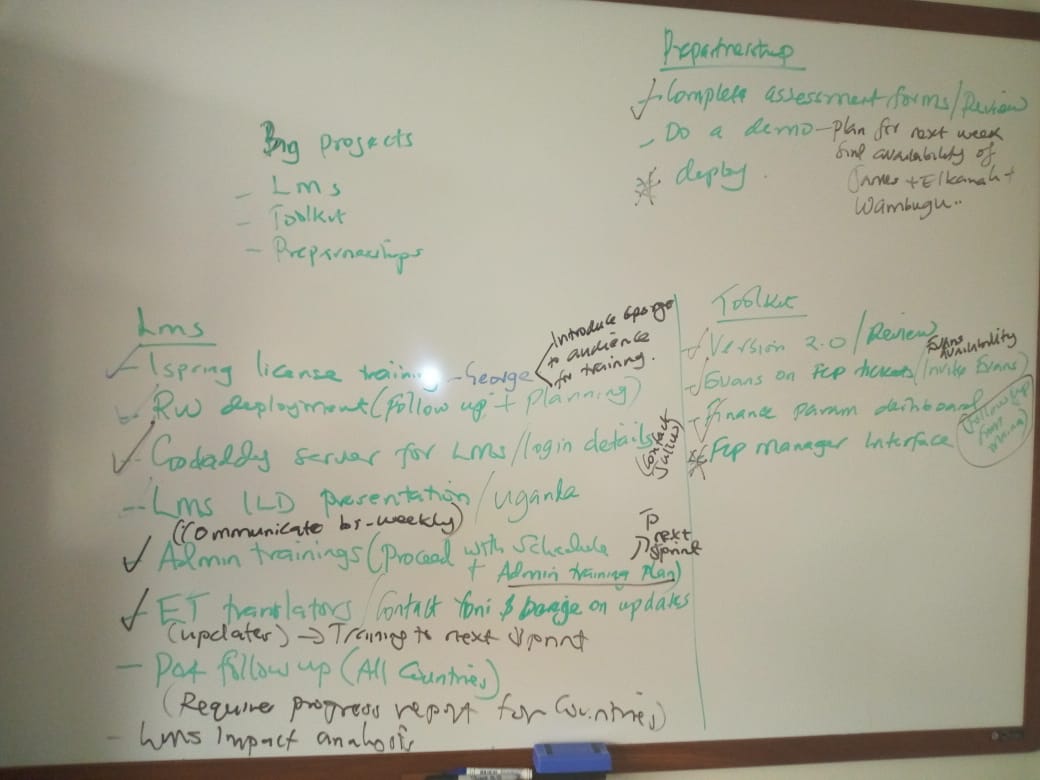 Big projects
- Lms
- Toolkit
- Prepartnerships
Prepartnership
Complete assessment forms/Review
- Do a demo - plan for next week
find availability of
James + Elkanah +
Wambugu..
deploy.
Lms
Ispring license training - George
Introduce George
to audience
for training.
RW deployment (follow up + planning)
Godaddy server for LMS/login details
(Contact
Julius)
- Lms ILD presentation/Uganda
(Communicate bi-weekly)
Admin trainings (Proceed with Schedule
+ Admin training plan)
next
sprint
ET translators/Contact Toni $ on updates
(updates) → Training to next Sprint
- follow up (All Countries)
(Require progress report for Countries)
- Lms Impact analysis
Toolkit
Version 2.0/Review
Evans
availability
Evans on Fcp tickets/Invite Evans)
- Finance param dashboard
(followup
from
Maina)
Fcp manager Interface